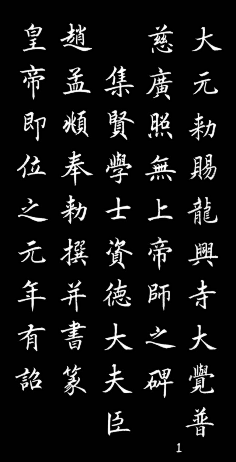 大元勅賜龍興寺大覺普
慈廣照無上帝師之碑
集賢學士資德大夫臣
趙孟頫奉勅撰并書篆
皇帝即位之元年有詔
1